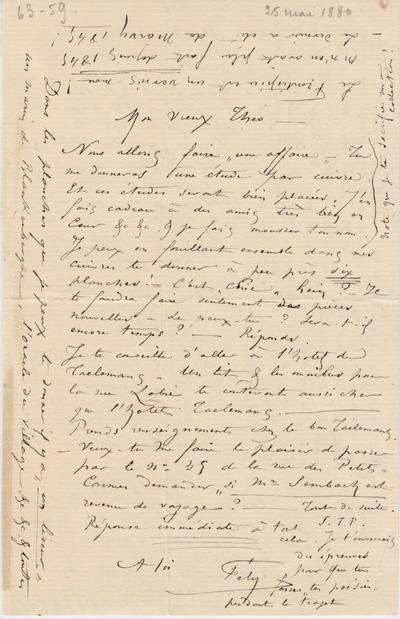 63-59.
25 mai 1880
Mon Vieux Théo —
Nous allons faire "une affaire" — Tu
me donneras une étude par cuivre
Et ces études seront bien placées. J'en
fais cadeau à des amis très bien en
Cour &c &c & je fais mousser ton nom.
Je peux en fouillant ensemble dans mes
cuivres te donner à peu près six
planches! — C'est "chic" hein? — Je
te faudra faire seulement des pièces
nouvelles — Le veux-tu? Sera-t-il
encore temps? — Réponds.
Je te conseille d'aller à l'hotel de
Taelemans — Un lit & les meubles pour
la rue te couteront aussi cher
que l'hotel Taelemans. —
Prends renseignements chez le bon Taelemans.
— Veux-tu me faire le plaisir de passer
par le No 39 de la rue des Petits-
Carmes demander "si Mr Sembach est
revenu de voyage"? — Tout de suite
S.T.P.
Réponse immédiate à tout
cela. Je t'enverrai
des épreuves
pour que tu
fasses tes poésies
pendant le trajet
A toi
Fély
Dans les planches que je peux te donner il y a, un lieur,
un marin de Blankenberghe, l'oracle du village &c &c &
Note que je te sacrifie ma
collection!
Le est un vernis mou
m'en ayant plus fait depuis 1845
— Le dernier a été de Marvy 1845!